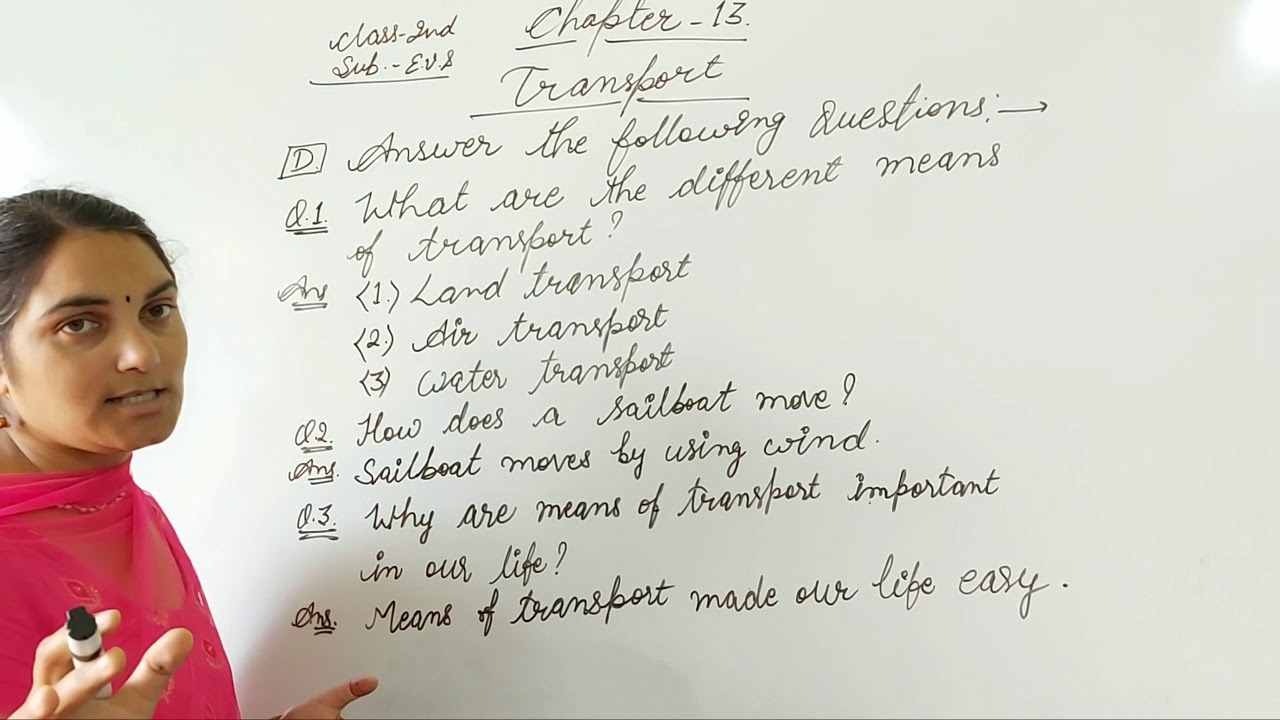 Class-2nd
Sub.- E.V.S
Chapter-13.
Transport
D. Answer the following Questions:→
Q.1. What are the different means
of transport?
Ans (1.) Land transport
(2.) Air transport
(3) Water transport
Q.2. How does a sailboat move?
Ans. Sailboat moves by using wind.
Q.3. Why are means of transport important
in our life?
Ans. Means of transport made our life easy.